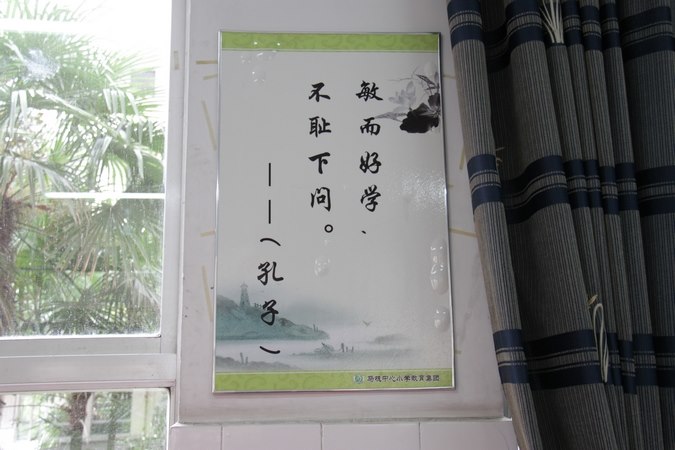 敏而好学、
不耻下问。
——（孔子）
杨桥中心小学教育集团